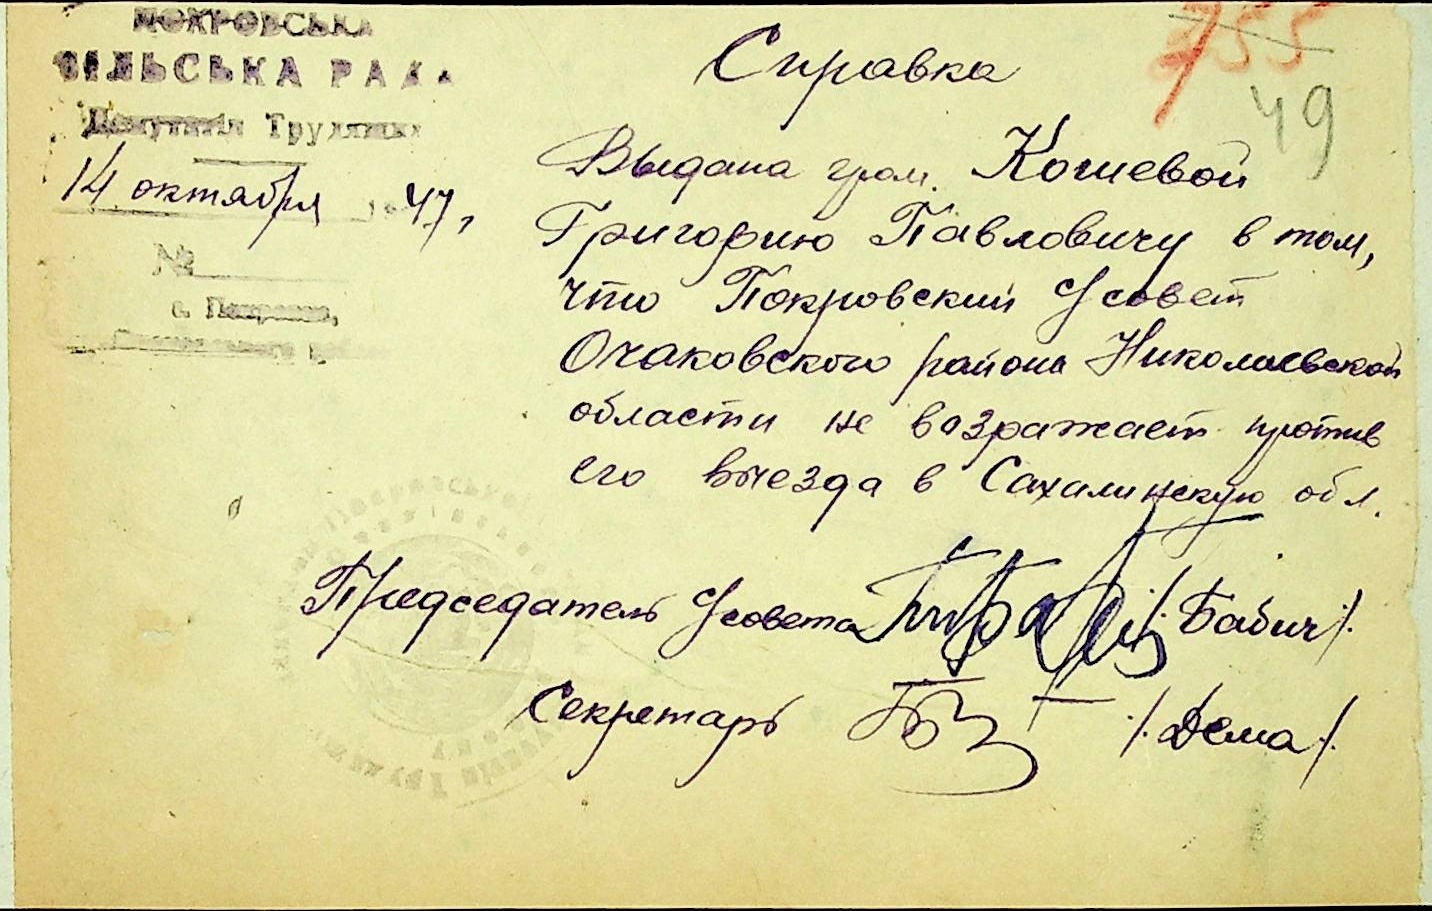 ПОКРОВСЬКА
СІЛЬСЬКА РАДА
Депутатів Трудящих
14 октября 1947,
№
с. Покровка,
255
49
Справка
Выдана гром. Кошевой
Григорию Павловичу в том,
что Покровский С/совет
Очаковского района Николаевской
области не возражает против
его выезда в Сахалинскую обл.
Председатель С/совета /Бабич/.
Секретарь /Дема/.